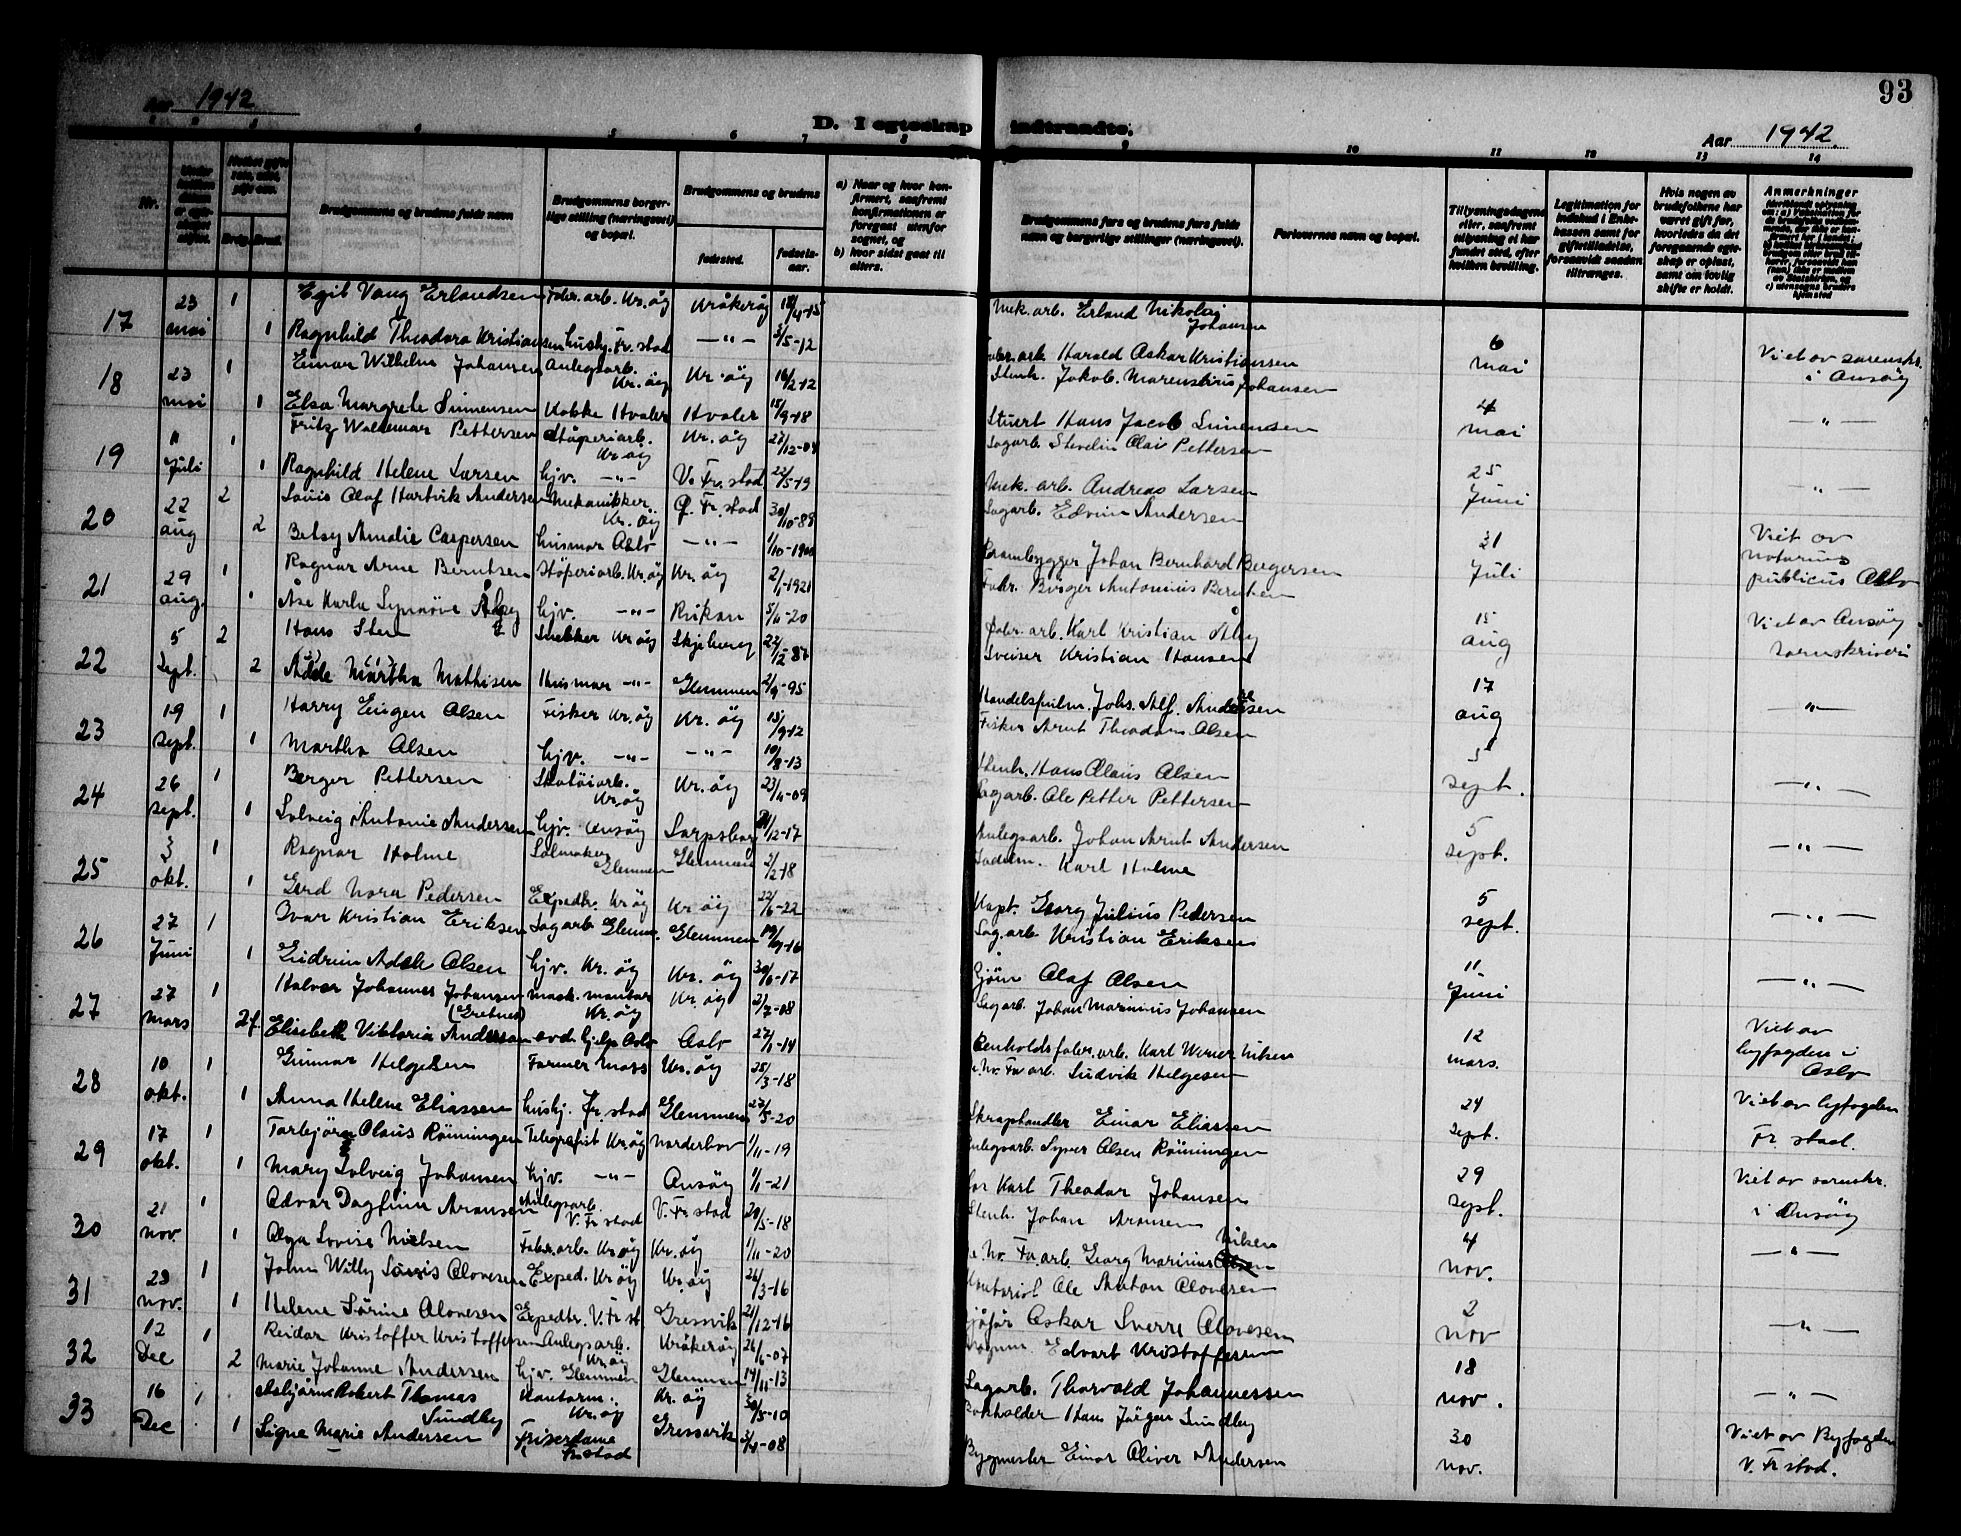 93
Aar 1942
D. I egteskap indtraadte.
Aar 1942.
Nr.
Brudg. Brud.
Brudgommens og brudens fulde navn
Brudgommens borgerlige stilling (næringsvei) og bopæl.
Brudgommens og brudens
fødested.
fødselsaar.
a) Naar og hvor konfirmert, saafremt konfirmationen er foregaat utenfor sognet, og
b) hvor sidst gaat til alters.
Brudgommens fars og brudens fars fulde navn og borgerlige stilling (næringsvei).
Forlovernes navn og bopæl.
Tillysningsdagene eller, saafremt tillysning ei har fundet sted, efter hvilken bevilling.
Legitimation for indskud i Enkekassen samt for giftetilladelse, forsaavidt saadan tiltrænges.
Hvis nogen av brudefolkene har været gift før, hvorledes da det foregaaende egteskap er opløst, samt om lovlig skifte er holdt.
Anmerkninger
17 23 mai 1 Egil Vang Erlandsen Fabr. arb. Kr. øy Kråkerøy 18/4-15 Mek. arb. Erland Nikolai Johansen 6 mai Viet av sorenskr. i Onsøy
1 Ragnhild Theodora Kristiansen hushj. Fr. stad —"— 3/5-12 Fabr. arb Harald Oskar Kristiansen
18 23 mai 1 Einar Wilhelm Johansen Anlegsarb. Kr. øy Kr. øy 16/2-12 Stenh. Jakob Marenstius Johansen 4 mai —"—
1 Elsa Margrete Simensen Kokke Hvaler Hvaler 15/9-18 Stuert Hans Jacob Simensen
19 11 Juli 1 Fritz Waldemar Pettersen Støperiarb. Kr. øy Kr. øy 27/12-04 Sagarb. Olai Pettersen 25 Juni —"—
1 Ragnhild Helene Larsen hjv. —"— V. Fr. stad 22/5-19 Mek. arb. Andreas Larsen
20 22 aug 2 Louis Olaf Hartvik Andersen Mekanikker Kr. øy Ø. Fr. stad 30/10-89 Sagarb. Edvin Andersen 31 Juli Viet av notarius publicus Oslo
2 Betsy Amalie Caspersen husmor Oslo —"— 1/10-1900 Johan Bernhard Bergersen
21 29 aug. 1 Ragnar Arne Berntsen Støperiarb. Kr. øy Kr. øy 2/1-1921 Fabr. Birger Antonius Berntsen 15 aug Viet av Onsøy sorenskriveri
1 Åse Karla Synnøve Ålby hjv. —"— Rukan 5/6-20 Fabr. arb. Karl Kristian Åby
22 5 Sept. 2 Hans Sten Snekker Kr. øy Skjeberg 22/12-87 Sveiser Kristian Hansen 17 aug —"—
2 Martha Mathisen Husmor —"— Glemmen 2/9-95 Handelsfullm. Johs. Alf. Andersen
23 19 sept. 1 Harry Eugen Olsen Fisker Kr. øy Kr. øy 15/9-12 Fisker Arnt Theodor Olsen 5 sept. —"—
1 Martha Olsen hjv. —"— —"— 10/8-13 Stenh. Hans Olaus Olsen
24 26 sept. 1 Berger Pettersen Skotøiarb. Kr. øy Kr. øy 23/11-09 Sagarb. Ole Petter Pettersen 5 sept. —"—
1 Solveig Antonie Andersen hjv. Onsøy Sarpsborg 21/12-17 Anlegsarb. Johan Arnt Andersen
25 3 okt. 1 Ragnar Holme Salmaker Glemmen Glemmen 2/2-18 Sadelm. Karl Holme 5 sept. —"—
1 Gerd Nora Pedersen Expedtr. Kr. øy Kr øy 22/6-22 Kapt. Georg Julius Pedersen
26 27 Juni 1 Ivar Kristian Eriksen Sagarb Glemm. Glemmen 19/9-16 Sag. arb Kristian Eriksen 11 Juni —"—
1 Gudrun Adele Olsen hjv. Kr. øy Kr. øy 30/6-17 Sjøm Olaf Olsen
27 27 mars 1 Halvor Johannes Johansen (Gretnes) mask. montør Kr. øy Kr. øy 2/7-08 Sagarb. Johan Marinius Johansen 12 mars. Viet av byfogden i Oslo
2f. Elisabeth Viktoria Andersson avd. hjelp Oslo Oslo 27/1-14 Renholdsfabr. arb. Karl Werner Nilsen
28 10 okt. 1 Gunnar Helgesen Farmer Moss Kr. øy 25/3-18 Ludvik Helgesen 24 sept. Viet av byfogden Fr. stad.
1 Anna Helene Eliassen hushj. Fr. stad Glemmen 27/5-20 Skraphandler Einar Eliassen
29 17 okt. 1 Torbjørn Olaus Rönningen Telegrafist Kr. øy Norderhov 1/11-19 Anlegsarb. Syver Olsen Rönningen 29 sept. Viet av sorenskr. i Onsøy
1 Mary Solveig Johansen hjv. —"— Onsøy 1/1-21 Karl Theodor Johansen
30 21 nov 1 Odvar Dagfinn Aronsen Anlegsarb. V. Fr stad V. Fr stad 20/5-18 Stenh. Johan Aronsen 4 nov. —"—
1 Olga Lovise Nielsen Fabr. arb. Kr øy Kr. øy 1/11-20 Georg Marinius Nilsen
31 28 nov. 1 John Willy Louis Olovesen Exped. Kr øy Kr. øy 26/3-16 Kontorist Ole Anton Olovesen 2 nov —"—
1 Helene Sörine Olovesen Expedtr. V. Fr st Gressvik 21/12-16 Sjåfør Oskar Sverre Olovesen
32 12 Dec 1 Reidar Kristoffer Kristoffersen Anlegsarb. Kr. øy Kråkerøy 26/6-07 Edvart Kristoffersen 18 nov. —"—
2 Marie Johanne Andersen hjv. Glemmen Glemmen 14/11-13 Sagarb. Thorvald Johannessen
33 16 Dec 1 Asbjörn Robert Thomas Sundby Kontorm. Kr. øy Kr. øy 30/5-10 Bokholder Hans Jörgen Sundby 30 nov. Viet av Byfogden V. Fr stad.
1 Signe Marie Andersen Friserdame Fr. stad Gressvik 3/4-08 Bygmester Einar Oliver Andersen